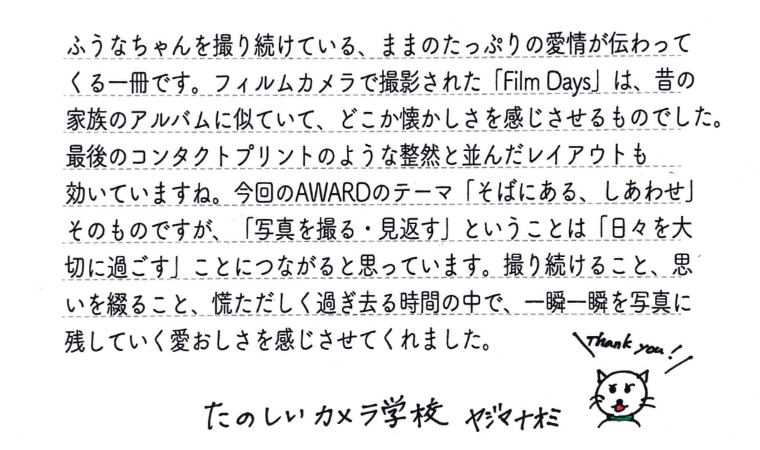 ふうなちゃんを撮り続けている、ままのたっぷりの愛情が伝わって
くる一冊です。フィルムカメラで撮影された「Film Days」は、昔の
家族のアルバムに似ていて、どこか懐かしさを感じさせるものでした。
最後のコンタクトプリントのような整然と並んだレイアウトも
効いていますね。今回のAWARDのテーマ「そばにある、しあわせ」
そのものですが、「写真を撮る・見返す」ということは「日々を大
切に過ごす」ことにつながると思っています。撮り続けること、思
いを綴ること、慌ただしく過ぎ去る時間の中で、一瞬一瞬を写真に
残していく愛おしさを感じさせてくれました。
Thank you!
たのしいカメラ学校 ヤジマナオミ